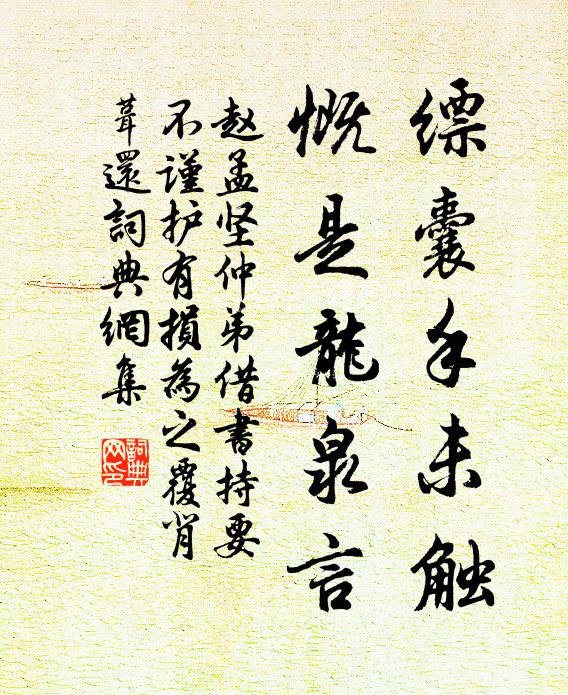 缥囊手未触
慨是龍泉言
赵孟坚仲弟借書持要
不谨护有損為之覆肖
葺還詞典網集
詞典网印